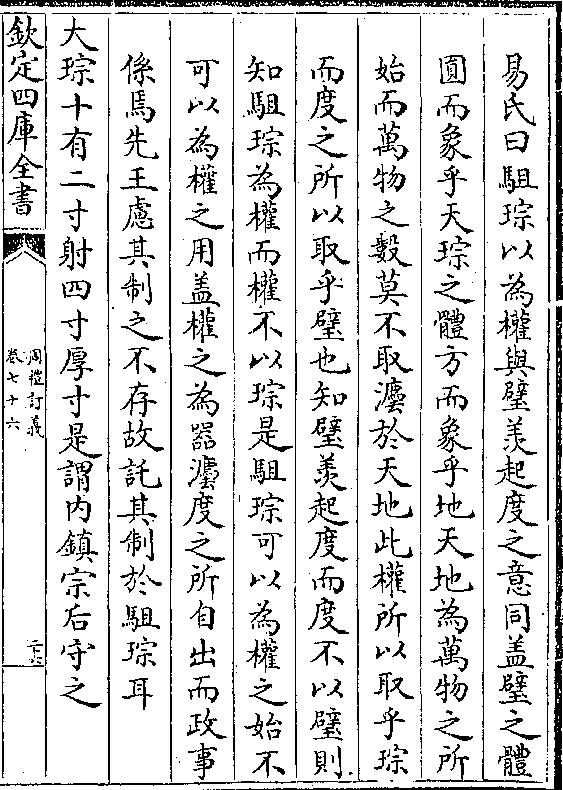 易氏曰駔琮以為權與璧羨起度之意同盖璧之體
圓而象乎天琮之體方而象乎地天地為萬物之所
始而萬物之數莫不取灋於天地此權所以取乎琮
而度之所以取乎璧也知璧羨起度而度不以璧則
知駔琮為權而權不以琮是駔琮可以為權之始不
可以為權之用盖權之為器灋度之所自出而政事
係焉先王慮其制之不存故託其制於駔琮耳
大琮十有二寸射四寸厚寸是謂内鎮宗后守之
欽定四庫全書
周禮訂義
卷七十六